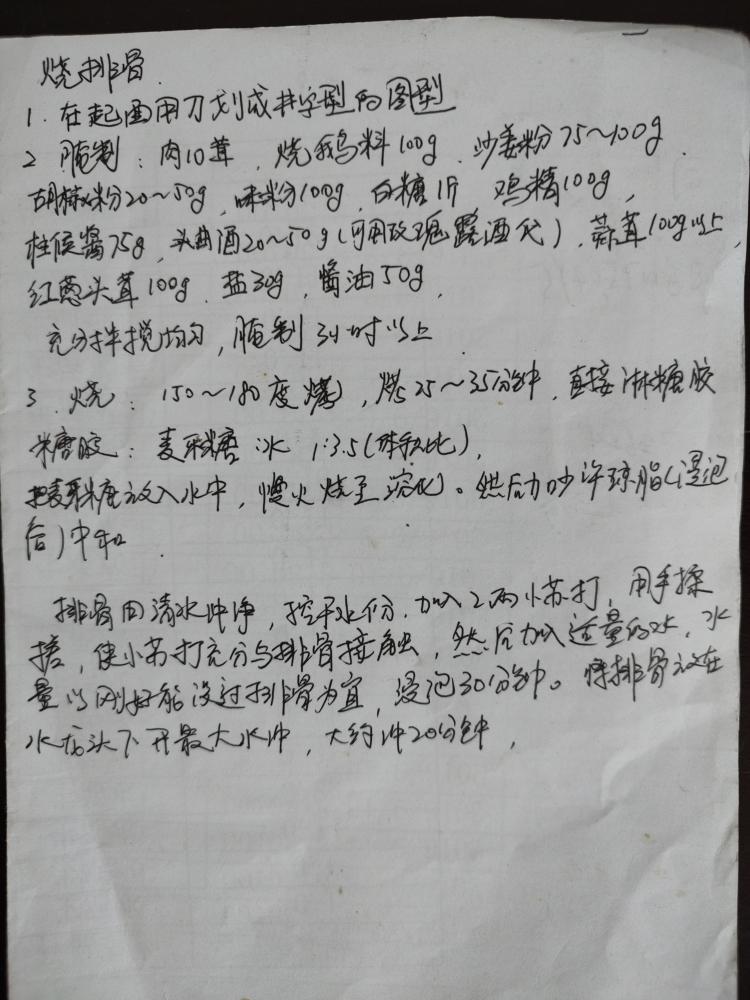 烧排骨.
1. 在起面用刀划成井字型的图型
2 腌制：肉10茸，烧鹅料100g，沙姜粉75～100g，
胡椒粉20～50g，味粉100g，白糖1斤 鸡精100g，
柱侯酱75g，头曲酒20～50g(可用玫瑰露酒代)，蒜茸100g以上，
红葱头茸100g，盐30g，酱油50g，
充分拌搅均匀，腌制3小时以上
3. 烧：150～180度，烤25～35分钟，直接淋糖胶
糖胶：麦芽糖:水 1:3.5(体积比)，
把麦芽糖放入水中，慢火烧至溶化。然后加少许琼脂(浸泡
后)中和.
排骨用清水冲净，控干水份，加入2两小苏打，用手揉
搓，使小苏打充分与排骨接触，然后加入适量的水，水
量以刚好能没过排骨为宜，浸泡30分钟。将排骨放在
水龙头下开最大水冲，大约冲20分钟，